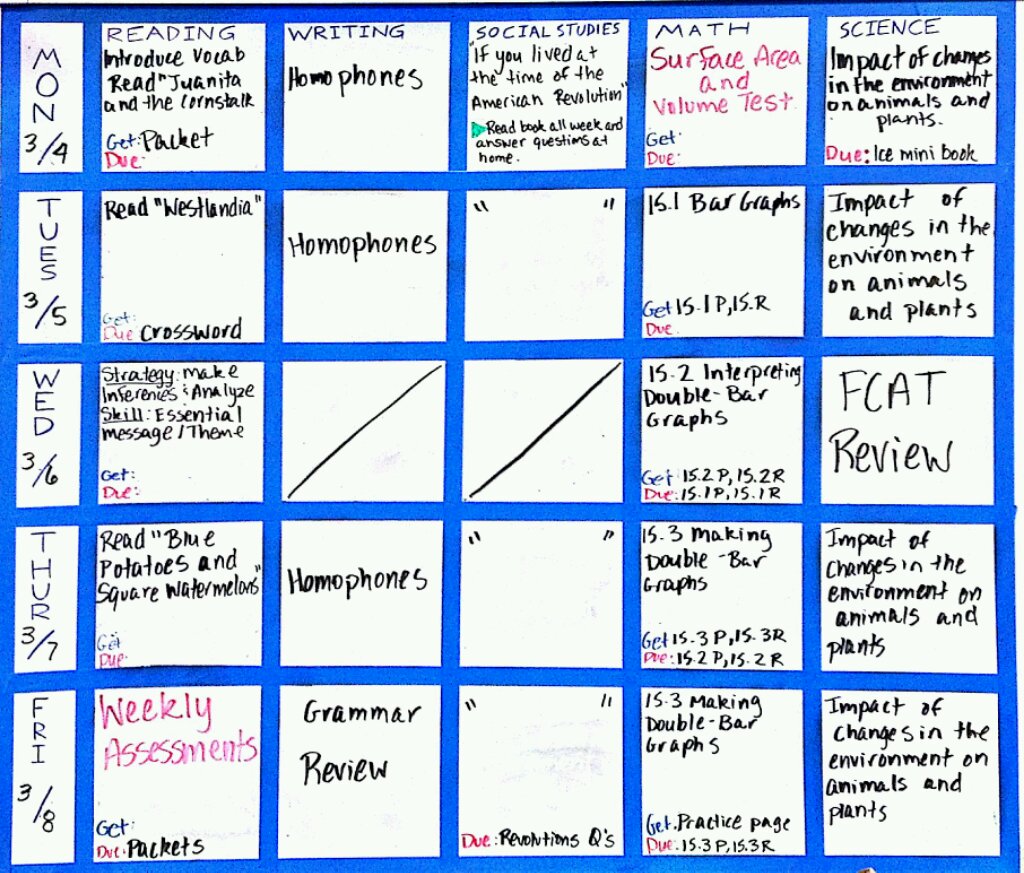 MON
3/4
READING
Introduce Vocab
Read "Juanita
and the Cornstalk
Get: Packet
Due:
WRITING
Homophones
SOCIAL STUDIES
"If you lived at
the time of the
American Revolution"
Read book all week and
answer questions at
home.
MATH
Surface Area
and
Volume Test
Get:
Due:
SCIENCE
Impact of changes
in the environment
on animals and
plants.
Due: Ice mini book
TUES
3/5
Read "Westlandia"
Get:
Due Crossword
Homophones
" "
15.1 Bar Graphs
Get 15.1 P, 15.R
Due.
Impact of
changes in the
environment
on animals
and plants
WED
3/6
Strategy: make
Inferences : Analyze
Skill: Essential
message/Theme
Get:
Due:
15.2 Interpreting
Double-Bar
Graphs
Get: 15.2 P, 15.2R
Due: 15.1 P, 15.1 R
FCAT
Review
THUR
3/7
Read "Blue
Potatoes and
Square Watermelons"
Get
Due.
Homophones
" "
15.3 Making
Double-Bar
Graphs
Get 15.3 P, 15.3R
Due: 15.2 P, 15.2 R
Impact of
changes in the
environment on
animals and
plants
FRI
3/8
Weekly
Assessments
Get:
Due: Packets
Grammar
Review
" "
Due: Revolutions Q's
15.3 Making
Double-Bar
Graphs
Get. Practice page
Due: 15.3 P, 15.3R
Impact of
changes in the
environment on
animals and
plants